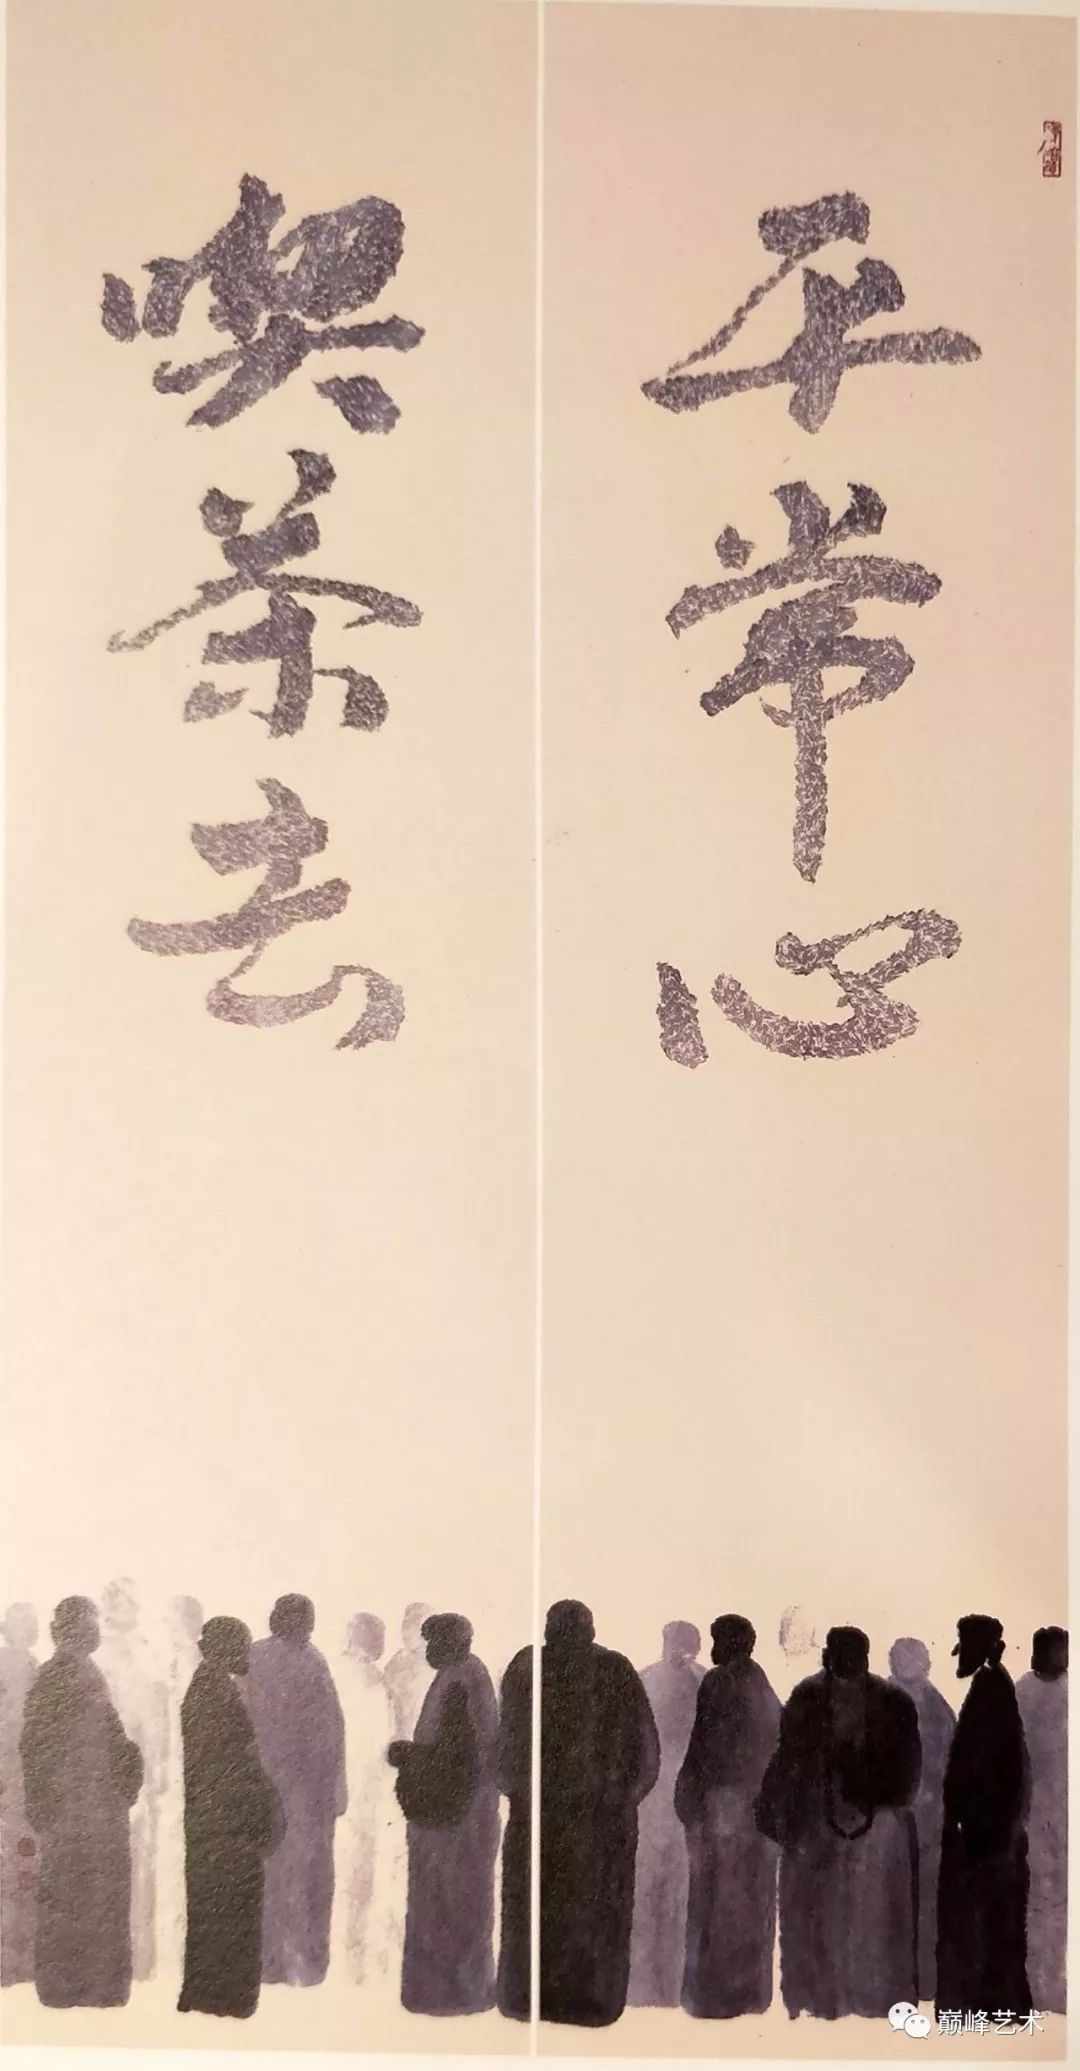 平常心
喫茶去
巅峰艺术